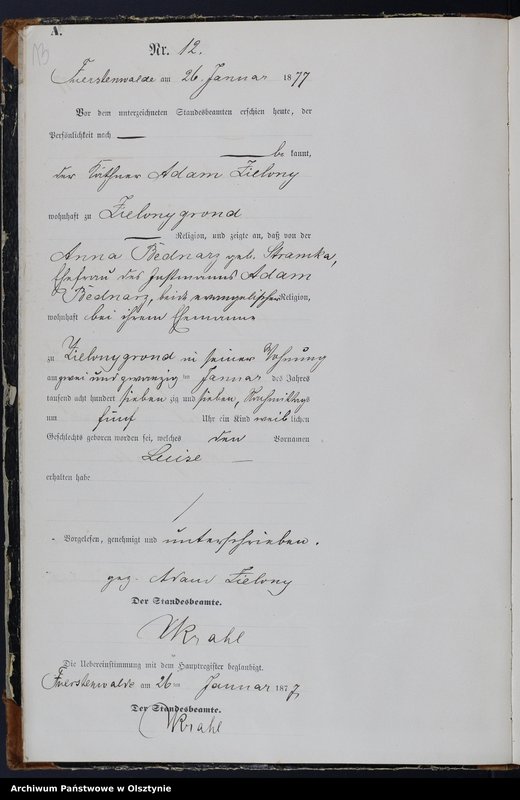 A.
Nr. 12.
Fuerstenwalde am 26. Januar 1877
Vor dem unterzeichneten Standesbeamten erschien heute, der
Persönlichkeit nach
be kannt,
der Käthner Adam Zielony
wohnhaft zu Zielonygrond
Religion, und zeigte an, daß von der
Anna Bednarz geb. Stramka,
Ehefrau des Instmanns Adam
Bednarz, beide evangelischer Religion,
wohnhaft bei ihrem Ehemanne
zu Zielonygrond in seiner Wohnung
am zwei und zwanzig ten Januar des Jahres
tausend acht hundert sieben zig und sieben, Nachmittags
um fünf Uhr ein Kind weib lichen
Geschlechts geboren worden sei, welches den Vornamen
Luise
erhalten habe
Vorgelesen, genehmigt und unterschrieben.
gez. Adam Zielony
Der Standesbeamte.
Krahl
Die Uebereinstimmung mit dem Hauptregister beglaubigt.
Fuerstenwalde am 26 ten Januar 1877
Der Standesbeamte.
Krahl
Archiwum Państwowe w Olsztynie